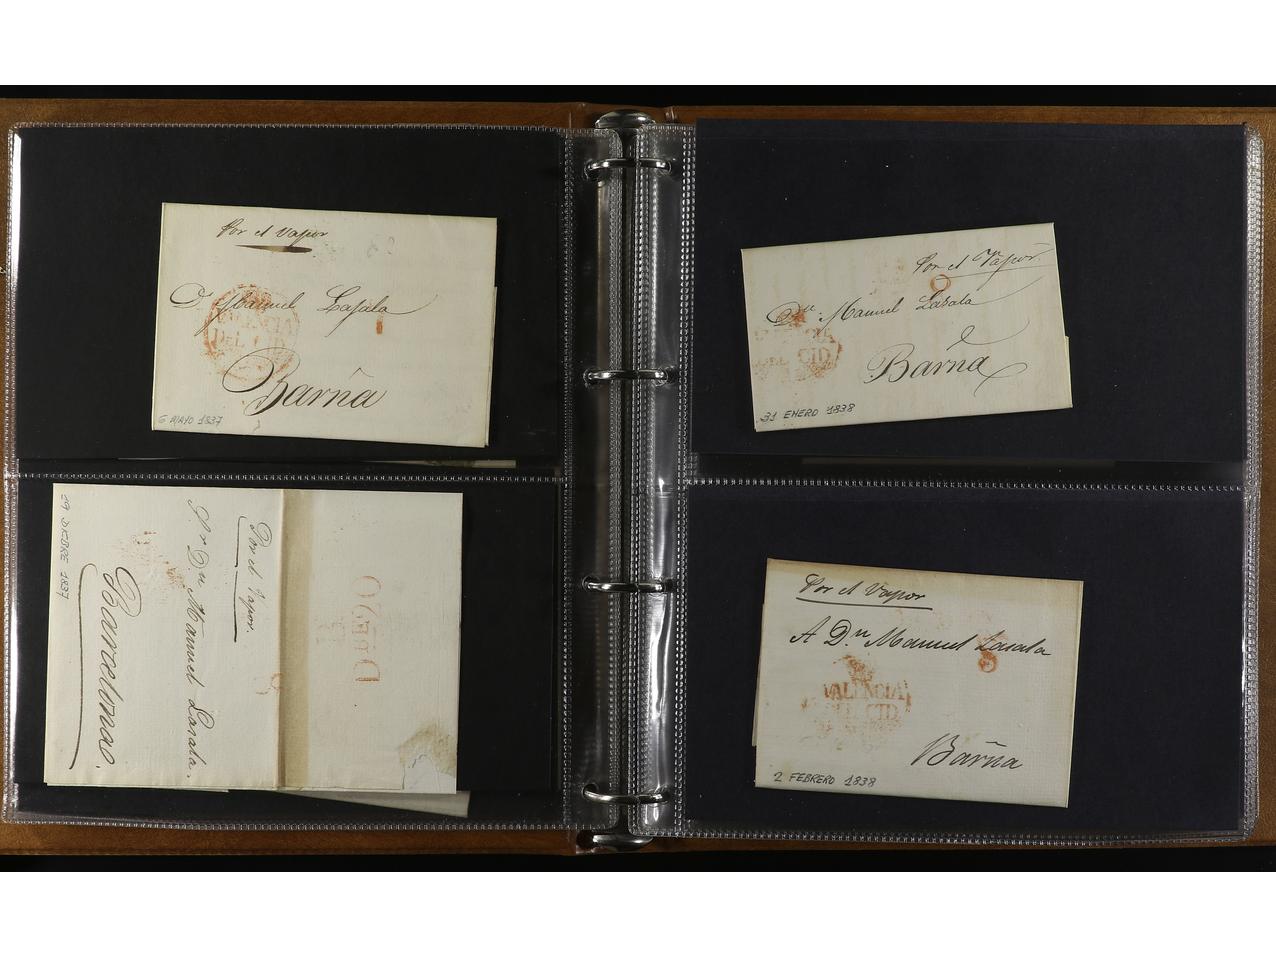 Por el Vapor
D. Manuel Lasala
VALENCIA
DEL CID
Barña
6 MAYO 1837
Por el Vapor
Dn. Manuel Lasala
DEL CID
Barña
31 ENERO 1838
Por el Vapor.
Sr. Dn. Manuel Lasala.
Barcelona.
29 DICBRE 1837
Por el Vapor
A Dn. Manuel Lasala
VALENCIA
DEL CID
Barña
2 FEBRERO 1838